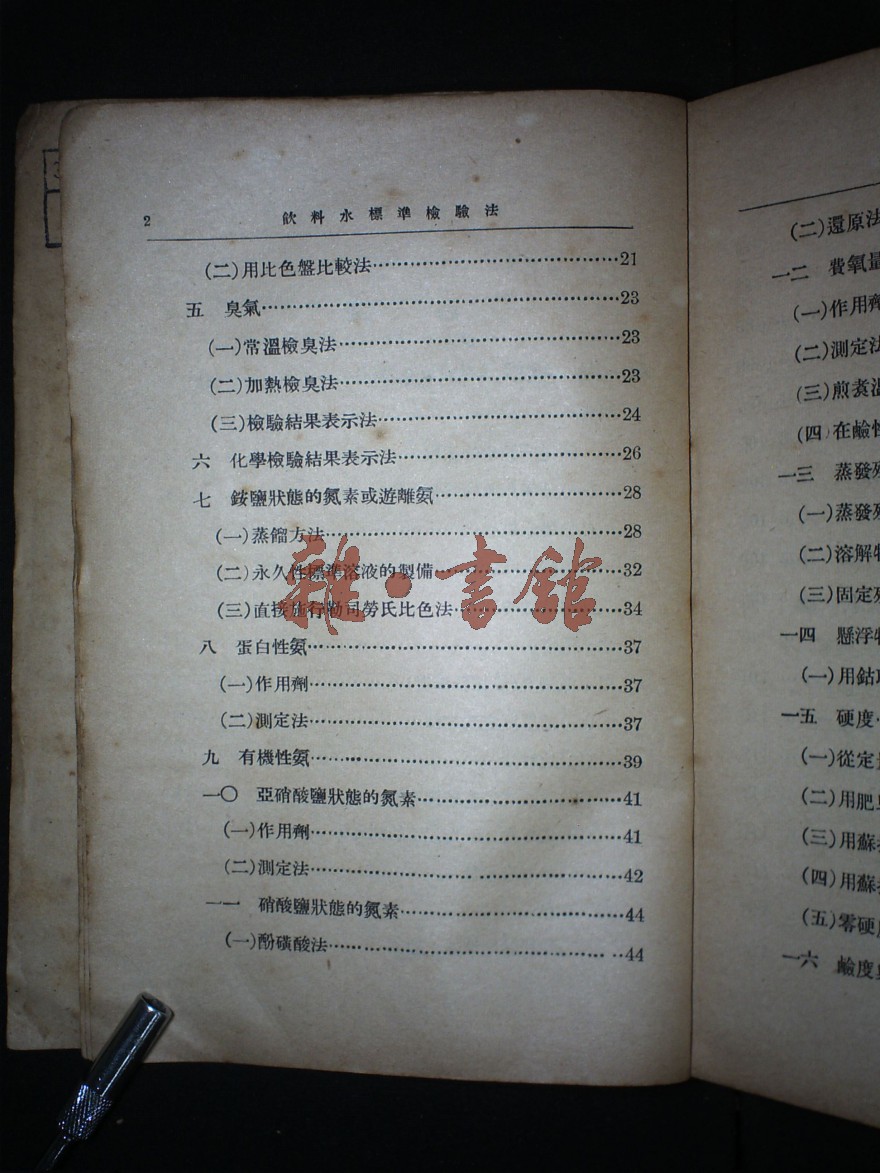 2 飲料水標準檢驗法
(二)用比色盤比較法……21
五 臭氣……23
(一)常溫檢臭法……23
(二)加熱檢臭法……23
(三)檢驗結果表示法……24
六 化學檢驗結果表示法……26
七 銨鹽狀態的氮素或遊離氨……28
(一)蒸餾方法……28
(二)永久性標準溶液的製備……32
(三)直接施行勒司勞氏比色法……34
八 蛋白性氨……37
(一)作用劑……37
(二)測定法……37
九 有機性氨……39
一〇 亞硝酸鹽狀態的氮素……41
(一)作用劑……41
(二)測定法……42
一一 硝酸鹽狀態的氮素……44
(一)酚磺酸法……44
雜·書館
(二)還原法
一二 費氧量
(一)作用劑
(二)測定法
(三)煎煑溫
(四)在鹼性
一三 蒸發殘
(一)蒸發殘
(二)溶解
(三)固定殘
一四 懸浮物
(一)用鈷
一五 硬度
(一)從定量
(二)用肥皂
(三)用蘇
(四)用蘇
(五)零硬度
一六 鹼度